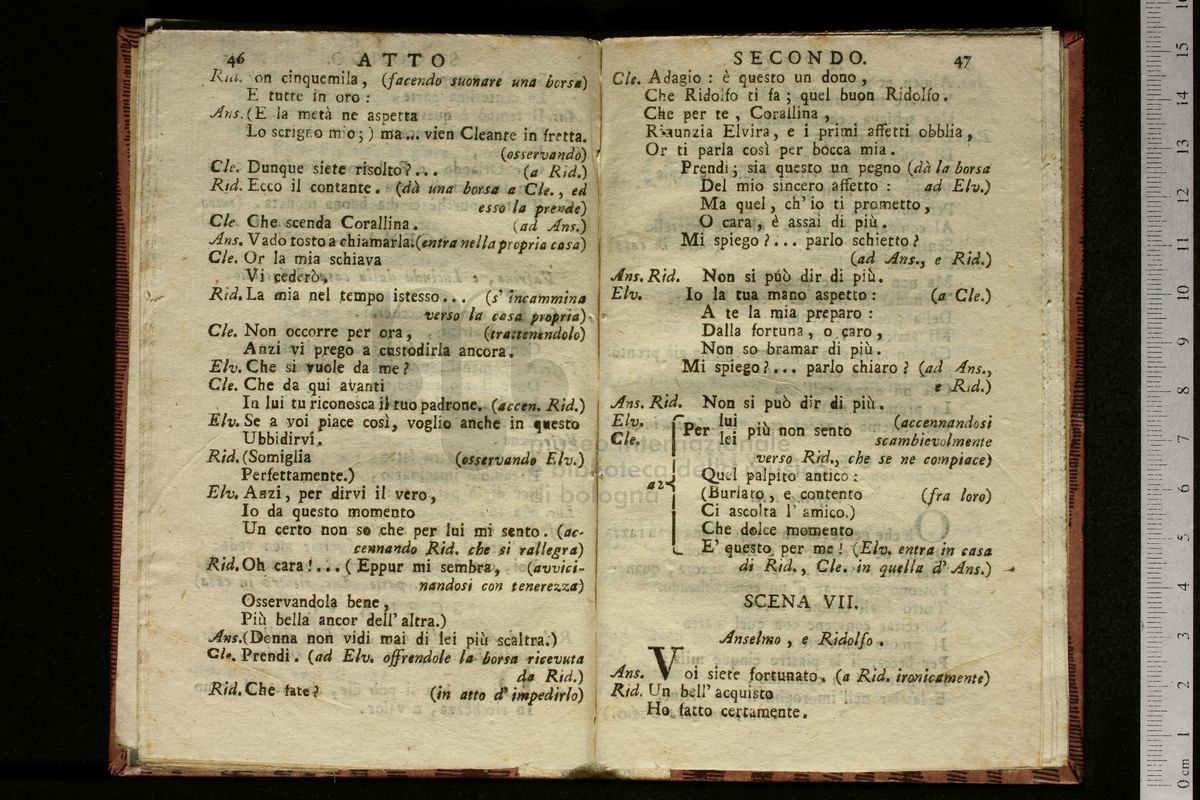 46 ATTO
Rid. on cinquemila, (facendo suonare una borsa)
E tutte in oro:
Ans. (E la metà ne aspetta
Lo scrigno mio;) ma... vien Cleante in fretta.
(osservando)
Cle. Dunque siete risolto?... (a Rid.)
Rid. Ecco il contante. (dà una borsa a Cle., ed
esso la prende)
Cle. Che scenda Corallina. (ad Ans.)
Ans. Vado tosto a chiamarla. (entra nella propria casa)
Cle. Or la mia schiava
Vi cederò.
Rid. La mia nel tempo istesso... (s' incammina
verso la casa propria)
Cle. Non occorre per ora, (trattenendolo)
Anzi vi prego a custodirla ancora.
Elv. Che si vuole da me?
Cle. Che da qui avanti
In lui tu riconosca il tuo padrone. (accen. Rid.)
Elv. Se a voi piace così, voglio anche in questo
Ubbidirvi.
Rid. (Somiglia (osservando Elv.)
Perfettamente.)
Elv. Anzi, per dirvi il vero,
Io da questo momento
Un certo non so che per lui mi sento. (ac-
cennando Rid. che si rallegra)
Rid. Oh cara!... (Eppur mi sembra, (avvici-
nandosi con tenerezza)
Osservandola bene,
Più bella ancor dell' altra.)
Ans. (Donna non vidi mai di lei più scaltra.)
Cle. Prendi. (ad Elv. offrendole la borsa ricevuta
da Rid.)
Rid. Che fate? (in atto d' impedirlo)
SECONDO. 47
Cle. Adagio: è questo un dono,
Che Ridolfo ti fa; quel buon Ridolfo.
Che per te, Corallina,
Rinunzia Elvira, e i primi affetti obblia,
Or ti parla così per bocca mia.
Prendi; sia questo un pegno (dà la borsa
Del mio sincero affetto: ad Elv.)
Ma quel, ch' io ti prometto,
O cara, è assai di più.
Mi spiego?... parlo schietto?
(ad Ans., e Rid.)
Ans. Rid. Non si può dir di più.
Elv. Io la tua mano aspetto: (a Cle.)
A te la mia preparo:
Dalla fortuna, o caro,
Non so bramar di più.
Mi spiego?... parlo chiaro? (ad Ans.,
e Rid.)
Ans. Rid. Non si può dir di più.
Elv. Per lui più non sento (accennandosi
Cle. lei scambievolmente
verso Rid., che se ne compiace)
Quel palpito antico:
a2 (Burlato, e contento (fra loro)
Ci ascolta l' amico.)
Che dolce momento
E' questo per me! (Elv. entra in casa
di Rid., Cle. in quella d' Ans.)
SCENA VII.
Anselmo, e Ridolfo.
Ans. Voi siete fortunato. (a Rid. ironicamente)
Rid. Un bell' acquisto
Ho fatto certamente.
museo internazionale
e biblioteca della musica
di bologna
0 cm 1 2 3 4 5 6 7 8 9 10 11 12 13 14 15